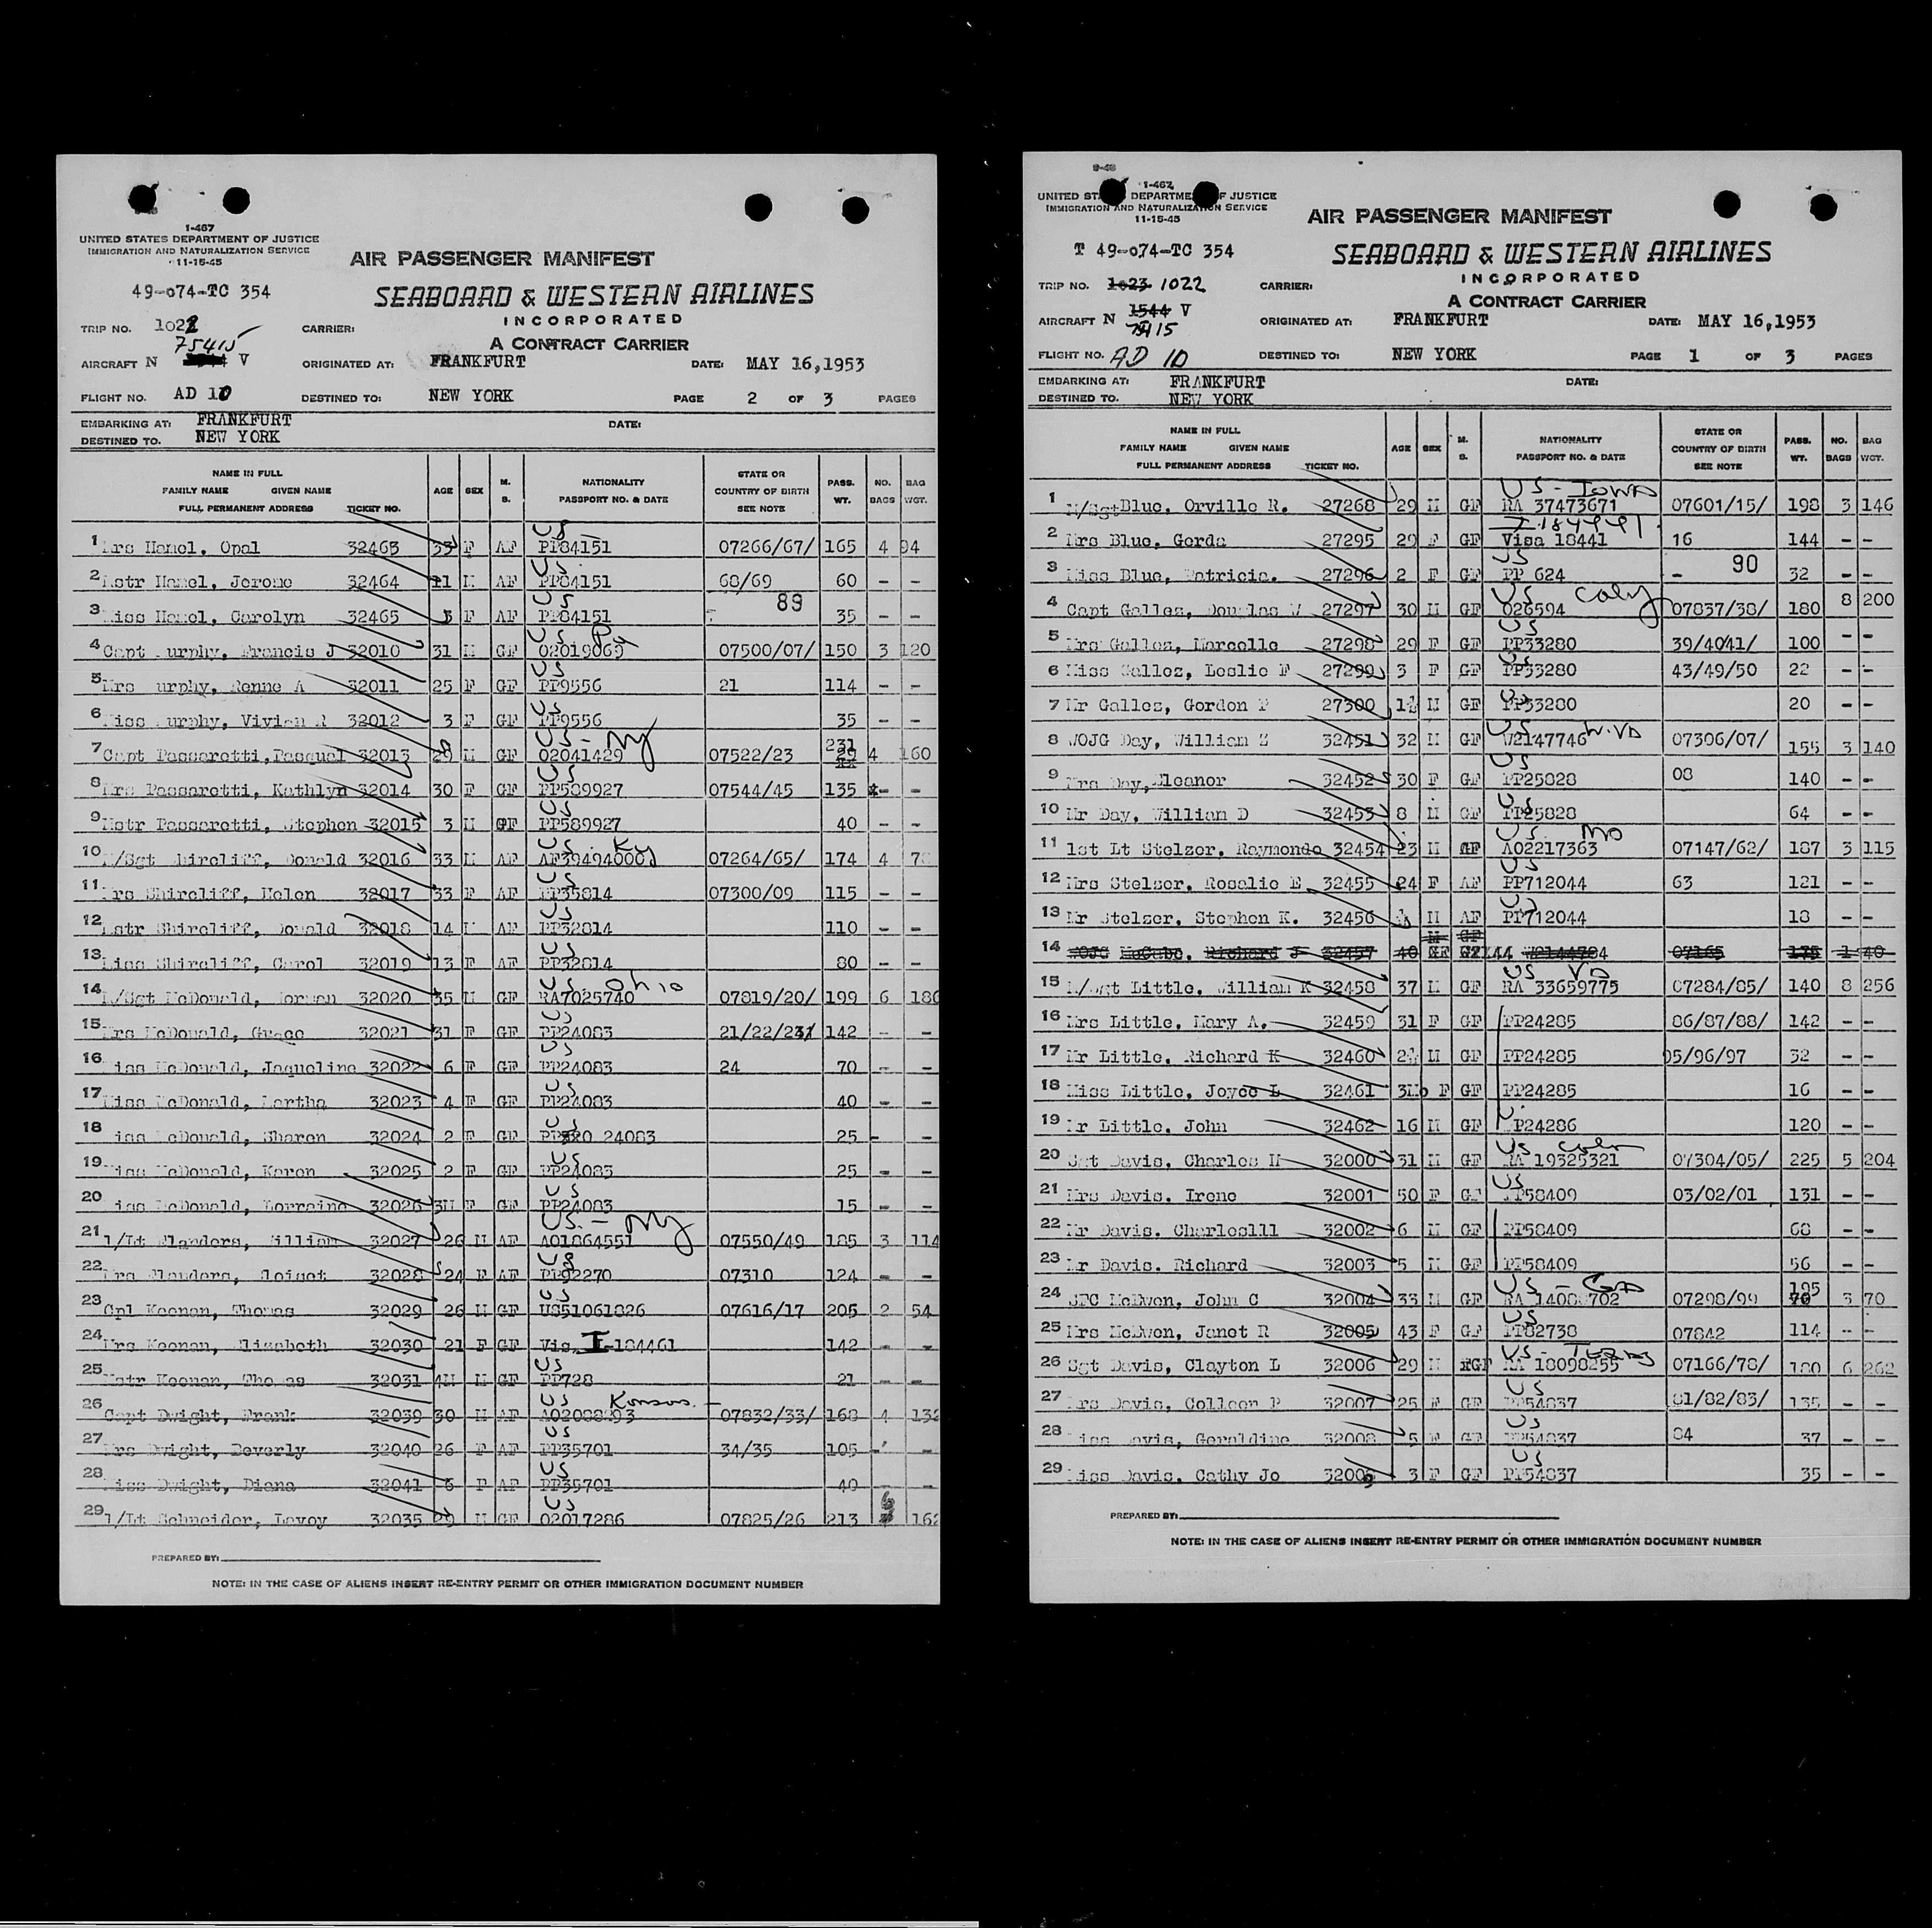 1-467
UNITED STATES DEPARTMENT OF JUSTICE
IMMIGRATION AND NATURALIZATION SERVICE
11-15-45
AIR PASSENGER MANIFEST
49-074-TC 354
SEABOARD & WESTERN AIRLINES
INCORPORATED
TRIP NO. 1022 CARRIER:
A CONTRACT CARRIER
75415
AIRCRAFT N V ORIGINATED AT: FRANKFURT DATE: MAY 16,1953
FLIGHT NO. AD 10 DESTINED TO: NEW YORK PAGE 2 OF 3 PAGES
EMBARKING AT: FRANKFURT DATE:
DESTINED TO. NEW YORK
NAME IN FULL FAMILY NAME GIVEN NAME FULL PERMANENT ADDRESS TICKET NO. AGE SEX M. S. NATIONALITY PASSPORT NO. & DATE STATE OR COUNTRY OF BIRTH SEE NOTE PASS. WT. NO. BAGS BAG WGT.
1 Mrs Hamel, Opal 32463 33 F AF US PP84151 07266/67/ 165 4 94
2 Mstr Hamel, Jerome 32464 11 M AF US PP84151 68/69 60 - -
3 Miss Hamel, Carolyn 32465 F AF US PP84151 89 35 - -
4 Capt Murphy, Francis J 32010 31 M GF US Pa 02019069 07500/07/ 150 3 120
5 Mrs Murphy, Renne A 32011 25 F GF US PP9556 21 114 - -
6 Miss Murphy, Vivian R 32012 3 F GF US PP9556 35 - -
7 Capt Passaretti,Pasqual 32013 29 M GF US - NY 02041429 07522/23 231 4 160
8 Mrs Passaretti, Kathlyn 32014 30 F GF US PP589927 07544/45 135 - -
9 Mstr Passaretti, Stephen 32015 3 M GF US PP589927 40 - -
10 M/Sgt Shircliff, Donald 32016 33 M AF US. Ky 07264/65/ 174 4
11 Mrs Shircliff, Helen 32017 33 F AF US 07300/09 115 - -
12 Mstr Shircliff, Donald 32018 14 M AF US PP32814 110 - -
13 Miss Shircliff, Carol 32019 13 F AF US PP32814 80 - -
14 M/Sgt McDonald, Norman 32020 35 M GF US. Ohio RA7025740 07819/20/ 199 6 186
15 Mrs McDonald, Grace 32021 31 F GF US PP24083 21/22/23/ 142 - -
16 Miss McDonald, Jaqueline 32022 6 F GF US PP24083 24 70 - -
17 Miss McDonald, Martha 32023 4 F GF US PP24083 40 - -
18 Miss McDonald, Sharon 32024 2 F GF US 24083 25 - -
19 Miss McDonald, Karen 32025 2 F GF US PP24083 25 - -
20 Miss McDonald, Lorraine 32026 3M F GF US PP24083 15 - -
21 1/Lt Flanders, William 32027 26 M AF US. - NY A01864551 07550/49 185 3 114
22 Mrs Flanders, 32028 24 F AF US PP92270 07310 124 - -
23 Cpl Keenan, Thomas 32029 26 M GF US US51061826 07616/17 205 2 54
24 Mrs Keenan, Elizabeth 32030 21 F GF Vis. I-184461 142 - -
25 Mstr Keenan, Thomas 32031 4M M GF US PP728 21 - -
26 Capt Dwight, Frank 32039 30 M AF US Kansas. 07832/33/ 168 4 132
27 Mrs Dwight, Beverly 32040 26 F AF US PP35701 34/35 105 - -
28 Miss Dwight, Diana 32041 F AF US PP35701 40 - -
29 1/Lt Schneider, Levoy 32035 29 M GF US 02017286 07825/26 213 162
PREPARED BY:
NOTE: IN THE CASE OF ALIENS INSERT RE-ENTRY PERMIT OR OTHER IMMIGRATION DOCUMENT NUMBER
1-467
UNITED STATES DEPARTMENT OF JUSTICE
IMMIGRATION AND NATURALIZATION SERVICE
11-15-45
AIR PASSENGER MANIFEST
T 49-074-TC 354
SEABOARD & WESTERN AIRLINES
INCORPORATED
TRIP NO. 1023 1022 CARRIER:
A CONTRACT CARRIER
AIRCRAFT N 1544 V ORIGINATED AT: FRANKFURT DATE: MAY 16,1953
FLIGHT NO. AD 10 DESTINED TO: NEW YORK PAGE 1 OF 3 PAGES
EMBARKING AT: FRANKFURT DATE:
DESTINED TO. NEW YORK
NAME IN FULL FAMILY NAME GIVEN NAME FULL PERMANENT ADDRESS TICKET NO. AGE SEX M. S. NATIONALITY PASSPORT NO. & DATE STATE OR COUNTRY OF BIRTH SEE NOTE PASS. WT. NO. BAGS BAG WGT.
1 M/Sgt Blue, Orville R. 27268 29 M GF US - Iowa RA 37473671 07601/15/ 198 3 146
2 Mrs Blue, Gerda 27295 29 F GF Visa 18441 16 144 - -
3 Miss Blue, Patricia. 27296 2 F GF US PP 624 - 90 32 - -
4 Capt Gallez, Douglas W 27297 30 M GF US 026594 07837/38/ 180 8 200
5 Mrs Gallez, Marcelle 27298 29 F GF US PP33280 39/4041/ 100 - -
6 Miss Gallez, Leslie F 27299 3 F GF US PP33280 43/49/50 22 - -
7 Mr Gallez, Gordon P 27300 1½ M GF US PP33280 20 - -
8 WOJG Day, William Z 32451 32 M GF US W.Va W2147746 07306/07/ 155 3 140
9 Mrs Day,Eleanor 32452 30 F GF US PP25828 08 140 - -
10 Mr Day, William D 32453 8 M GF US PP25828 64 - -
11 1st Lt Stelzer, Raymondo 32454 23 M AF US. Mo AO2217363 07147/62/ 187 3 115
12 Mrs Stelzer, Rosalie E 32455 24 F AF US PP712044 63 121 - -
13 Mr Stelzer, Stephen K. 32456 M AF US PP712044 18 - -
14 WOJG McCabe, Richard J 32457 40 07165 175 1 40
15 M/Sgt Little, William K 32458 37 M GF US Va RA 33659775 07284/85/ 140 8 256
16 Mrs Little, Mary A. 32459 31 F GF PP24285 86/87/88/ 142 - -
17 Mr Little, Richard K 32460 2½ M GF PP24285 95/96/97 32 - -
18 Miss Little, Joyce L 32461 3Mo F GF PP24285 16 - -
19 Mr Little, John 32462 16 M GF PP24286 120 - -
20 Sgt Davis, Charles H 32000 31 M GF US RA 19325321 07304/05/ 225 5 204
21 Mrs Davis. Irene 32001 50 F GF US PP58409 03/02/01 131 - -
22 Mr Davis. Charleslll 32002 6 M GF PP58409 68 - -
23 Mr Davis. Richard 32003 5 M GF PP58409 56 - -
24 SFC McEwen, John C 32004 33 M GF US - Ga 07298/99 195 3 70
25 Mrs McEwen, Janet R 32005 43 F GF US PP82738 07842 114 - -
26 Sgt Davis, Clayton L 32006 29 M GF US - Texas RA 18098255 07166/78/ 180 6 262
27 Mrs Davis, Colleen P 32007 25 F GF US PP54837 81/82/83/ 135 - -
28 Miss Davis, Geraldine 32008 5 F GF US PP54837 84 37 - -
29 Miss Davis. Cathy Jo 32009 3 F GF US PP54837 35 - -
PREPARED BY:
NOTE: IN THE CASE OF ALIENS INSERT RE-ENTRY PERMIT OR OTHER IMMIGRATION DOCUMENT NUMBER